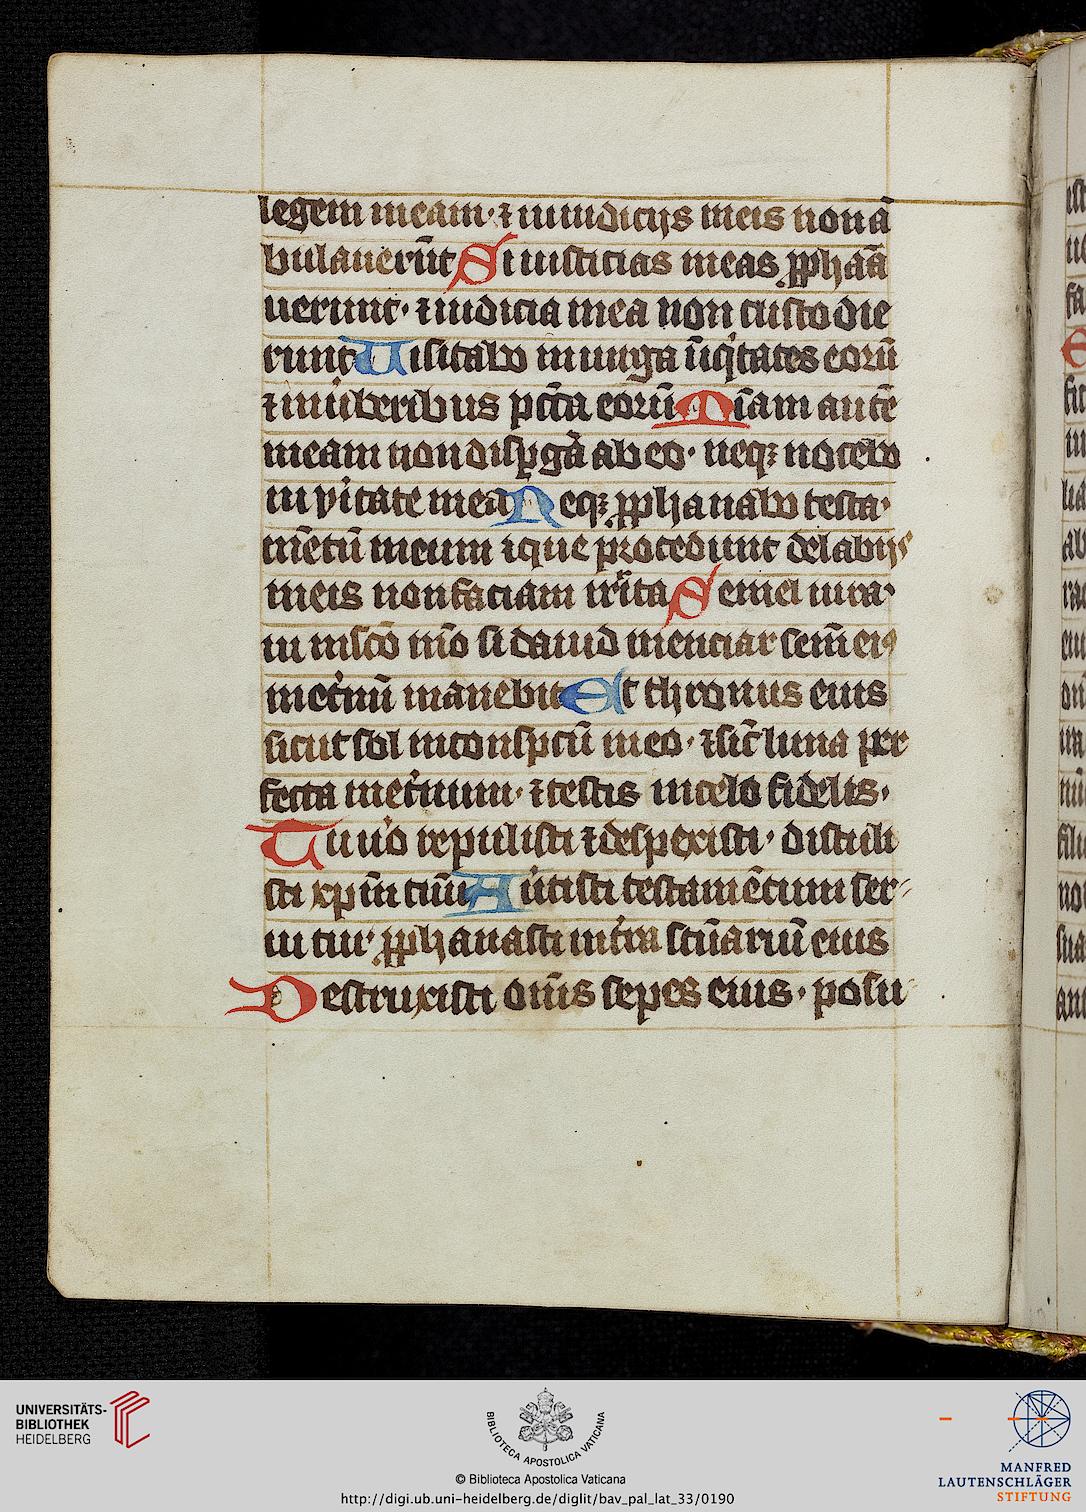 legem meam· ⁊ in iudicijs meis non ā
bulauerūt Si iusticias meas ꝓphāa
uerint· ⁊ iudicia mea non custodie
rint Uisitabo in uirga īiq̇tates eorū
⁊ in ůberibus pc̄ca eorū Mīam autē
meam non disꝑgā ab eo· neqꝫ nocebo
in vi̇tate mea Neqꝫ ꝓphanabo testa·
mētū meum ⁊ que procedunt de labijs
meis non faciam irrita Semel iura·
ui in sc̄o mō si dauid menciar sem̄ eiꝰ
in et̓nū manebit Et thronus eius
sicut sol in conspc̄u meo· ⁊ sic̄ luna per
fecta in et̓num· ⁊ testis in celo fidelis·
Tu u̓o repulisti ⁊ despexisti· distuli
sti xp̄m tuū Au̓tisti testamētum ser
ui tui· ꝓphanasti in t̓ra sc̄uariū eius
Destruxisti om̄s sepes eius· posu
UNIVERSITÄTS-
BIBLIOTHEK
HEIDELBERG
BIBLIOTECA APOSTOLICA VATICANA
© Biblioteca Apostolica Vaticana
http://digi.ub.uni-heidelberg.de/diglit/bav_pal_lat_33/0190
MANFRED
LAUTENSCHLÄGER
STIFTUNG